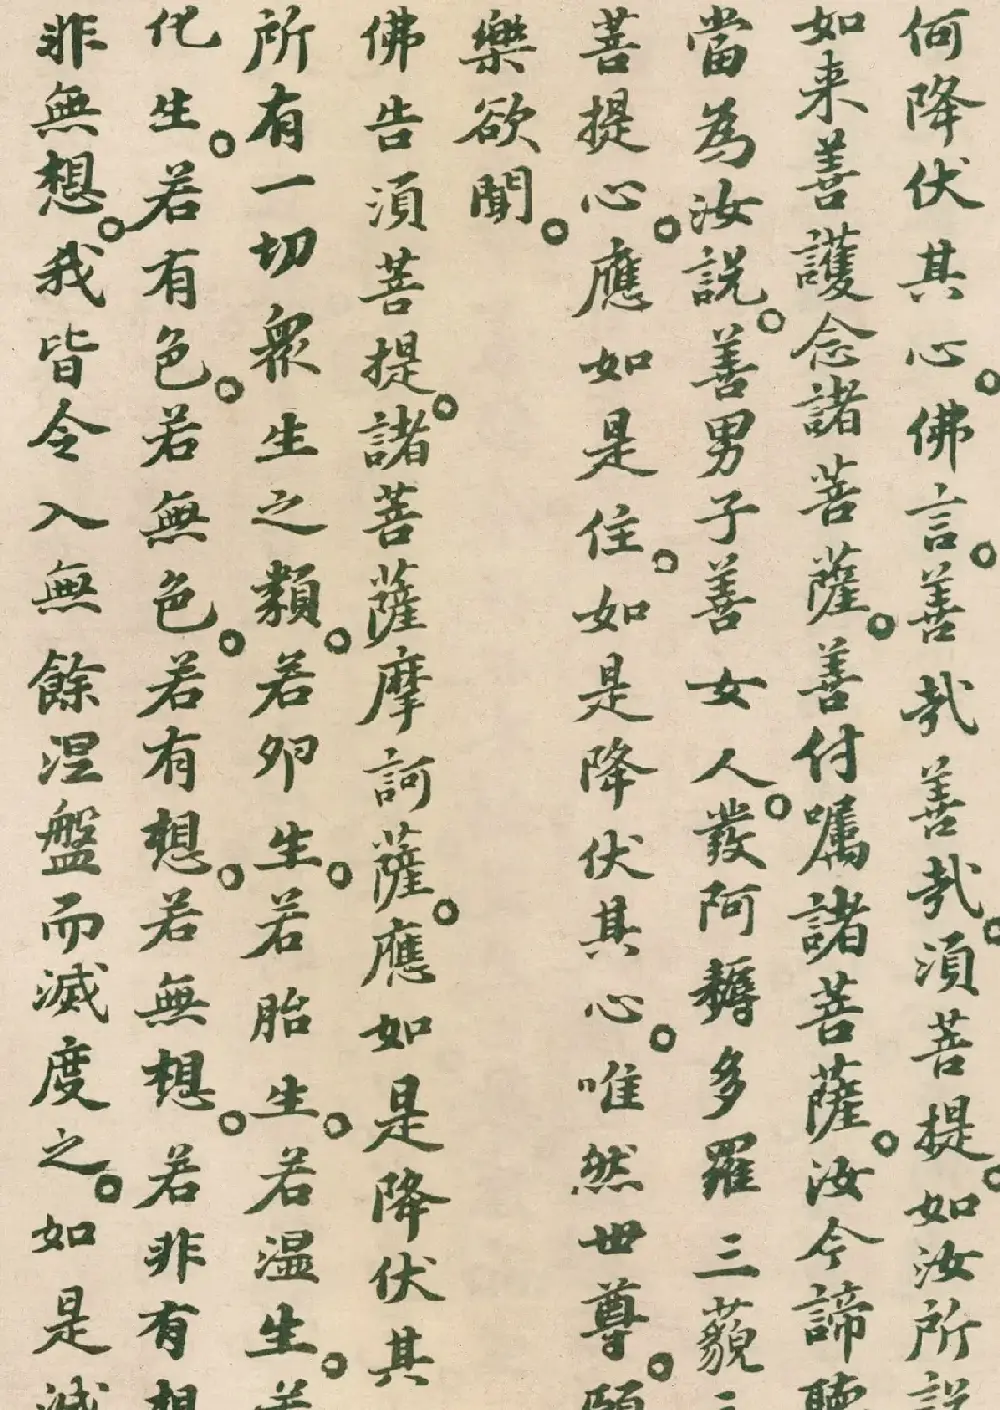 何降伏其心。佛言。善哉善哉。須菩提。如汝所説
如来善護念諸菩薩。善付嘱諸菩薩。汝今諦聽
當為汝説。善男子善女人。發阿耨多羅三藐三
菩提心。應如是住。如是降伏其心。唯然世尊。願
樂欲聞。
佛告須菩提。諸菩薩摩訶薩。應如是降伏其
所有一切衆生之類。若卵生。若胎生。若温生。若
化生。若有色。若無色。若有想。若無想。若非有想
非無想。我皆令入無餘涅盤而滅度之。如是滅